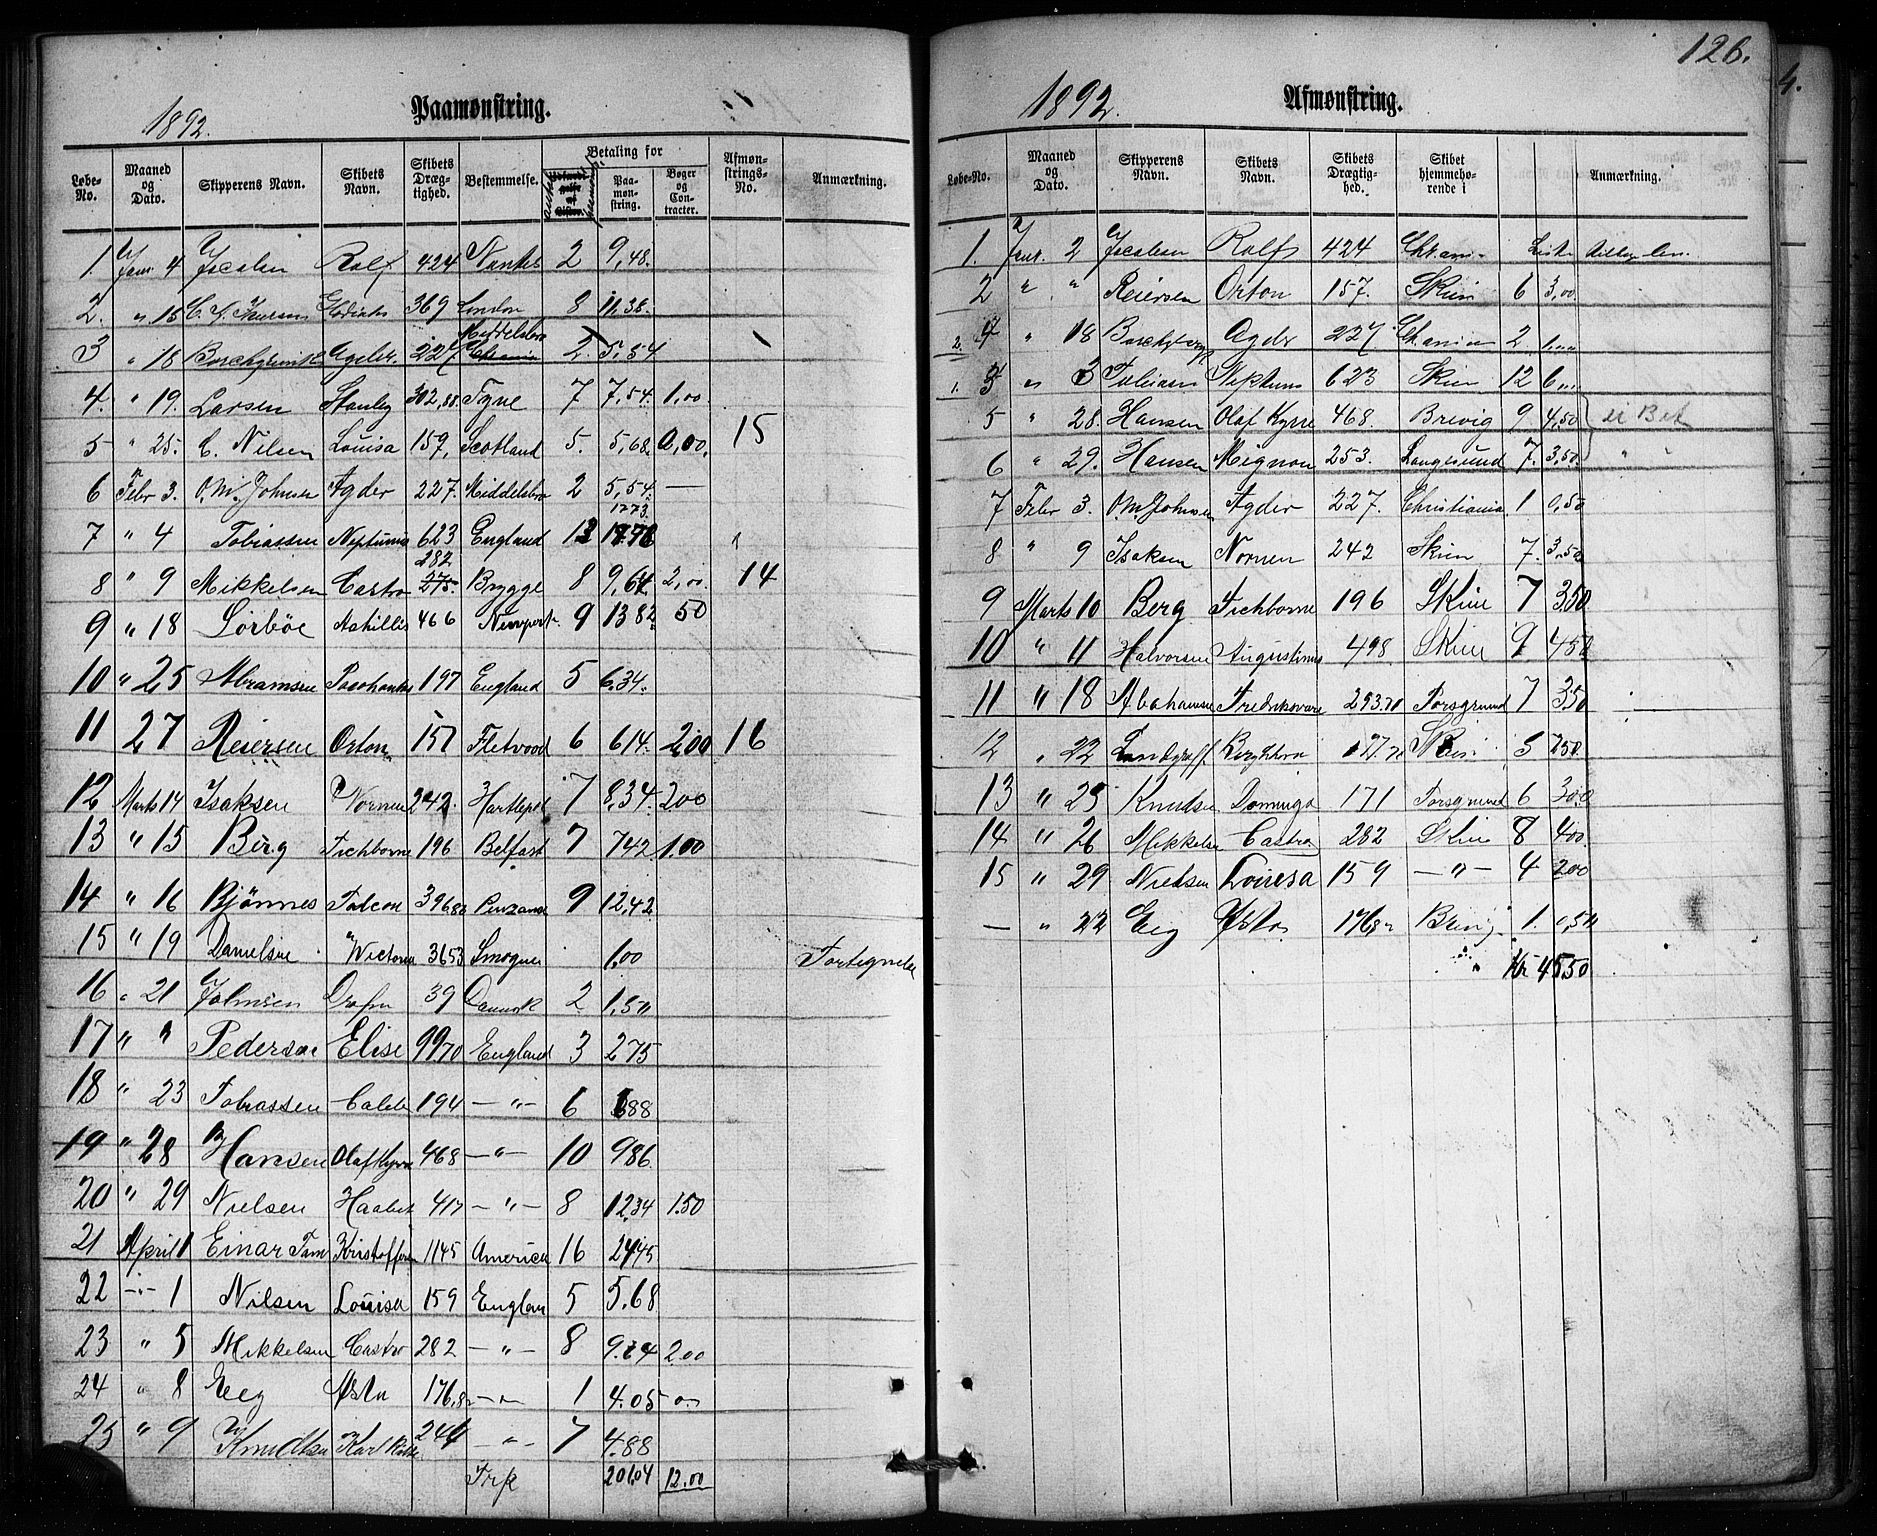 126.
4.
1892. Paamønstring.
Løbe-No. Maaned og Dato. Skipperens Navn. Skibets Navn. Skibets Drægtighed. Bestemmelse. Betaling for Paamonstring. Bøger og Contracter. Afmønstrings-No. Anmærkning.
1. Janr 4 Jacobsen Rolf 424 Nantes 2 9,48.
2. " 15 369 London 8 11,38.
3 " 18 Agder. 227 Middelsbro 2 5,54
4. " 19. Larsen Stanley 302,88. Tyne 7 7,54. 1,00
5 " 25. C. Nilsen Louisa 159, Scotland 5. 5,68. 0,00. 15
6 Febr 3. O.M. Johnsen Agder 227. Middelsbro 2 5,54. —
7 " 4 Tobiassen Neptunus 623 England 13 1773.
8 " 9 Mikkelsen Castro 275. 282 Brygge 8 9,64 2,00. 14
9 " 18 Sørbøe Achillis 466 Newport. 9 13 82 50
10 " 25 Abramsen Pocohontas 197 England 5 6,34.
11 27 Reiersen Orton 157 Fletvood 6 614. 2,00 16
12 Marts 14 Isaksen Nornen 242. Hartlepol 7 8,34. 200
13 " 15 Berg Tichborne 196 Belfast 7 742 1.00
14 " 16 Bjönnes Falcon 396,88 Penzance 9 12,42
15 " 19 Danielsen Victoria 3653 Smogner 1,00 Fortegnelse
16 " 21 Johnsen Drafn 39 Danmark 2 1,50
17 " " Pedersen Elise 99 70 England 3 275
18 " 23 Tobiassen Caleb 194 — " — 6 688
19 " 28 Hansen Olaf Kyrre 468 — " — 10 986.
20 " 29 Nielsen Haabet 417 — " — 8 12.34 1.50
21 April 1 Einar Tam Kristoffersen 1145 America 16 24.45
22 — " — 1 Nilsen Louisa 159 Englan 5 5.68
23 " 5 Mikkelsen Castro 282 — " — 8 9.64 2.00
24 " 8 Eeg Østa 176,8 — " — 1 4.05
25 " 9 Knudtsen Karl 244 — " — 7 4.88
201,04 12.00
1892. Afmønstring.
Løbe-No. Maaned og Dato. Skipperens Navn. Skibets Navn. Skibets Drægtighed. Skibet hjemmehørende i Anmærkning.
1. Janr. 2 Jacobsen Rolf 424 Chrania
2 " " Reiersen Orton 157. Skien 6 3,00
2. 4 " 18 Agder 227. Chrania 2. 1,""
1. 3 " 3 Tobiasen Neptunus 623 Skien 12 6,""
5 " 28. Hansen Olaf Kyrre 468. Brevig 9 4,50 er Bet
6 " 29. Hansen Mignon 253. Langesund 7. 3,50. " "
7 Febr 3. O.M. Johnsen Agder 227. Christiania 1 0,50
8 " 9 Isaksen Nornen 242 Skien 7. 3,50
9 Marts 10 Berg Tichborne 196 Skien 7 3,50
10 " 11 Halvorsen Augustinus 498 Skien 9 4,50
11 " 18 Abrahamsen Fredriksværn 253.70 Porsgrund 7 350
12 " 22 Landgraff Bergthora Skien 5 2,50.
13 " 25 Knudsen Dominga 171 Porsgrund 6 300
14 " 26 Mikkelsen Castro 282 Skien 8 400.
15 " 29 Nielsen Louisa 159 — " — 4 200
— " 22 Eeg Østa 176,8 Brevig 1. 0,50
Kr 45,50